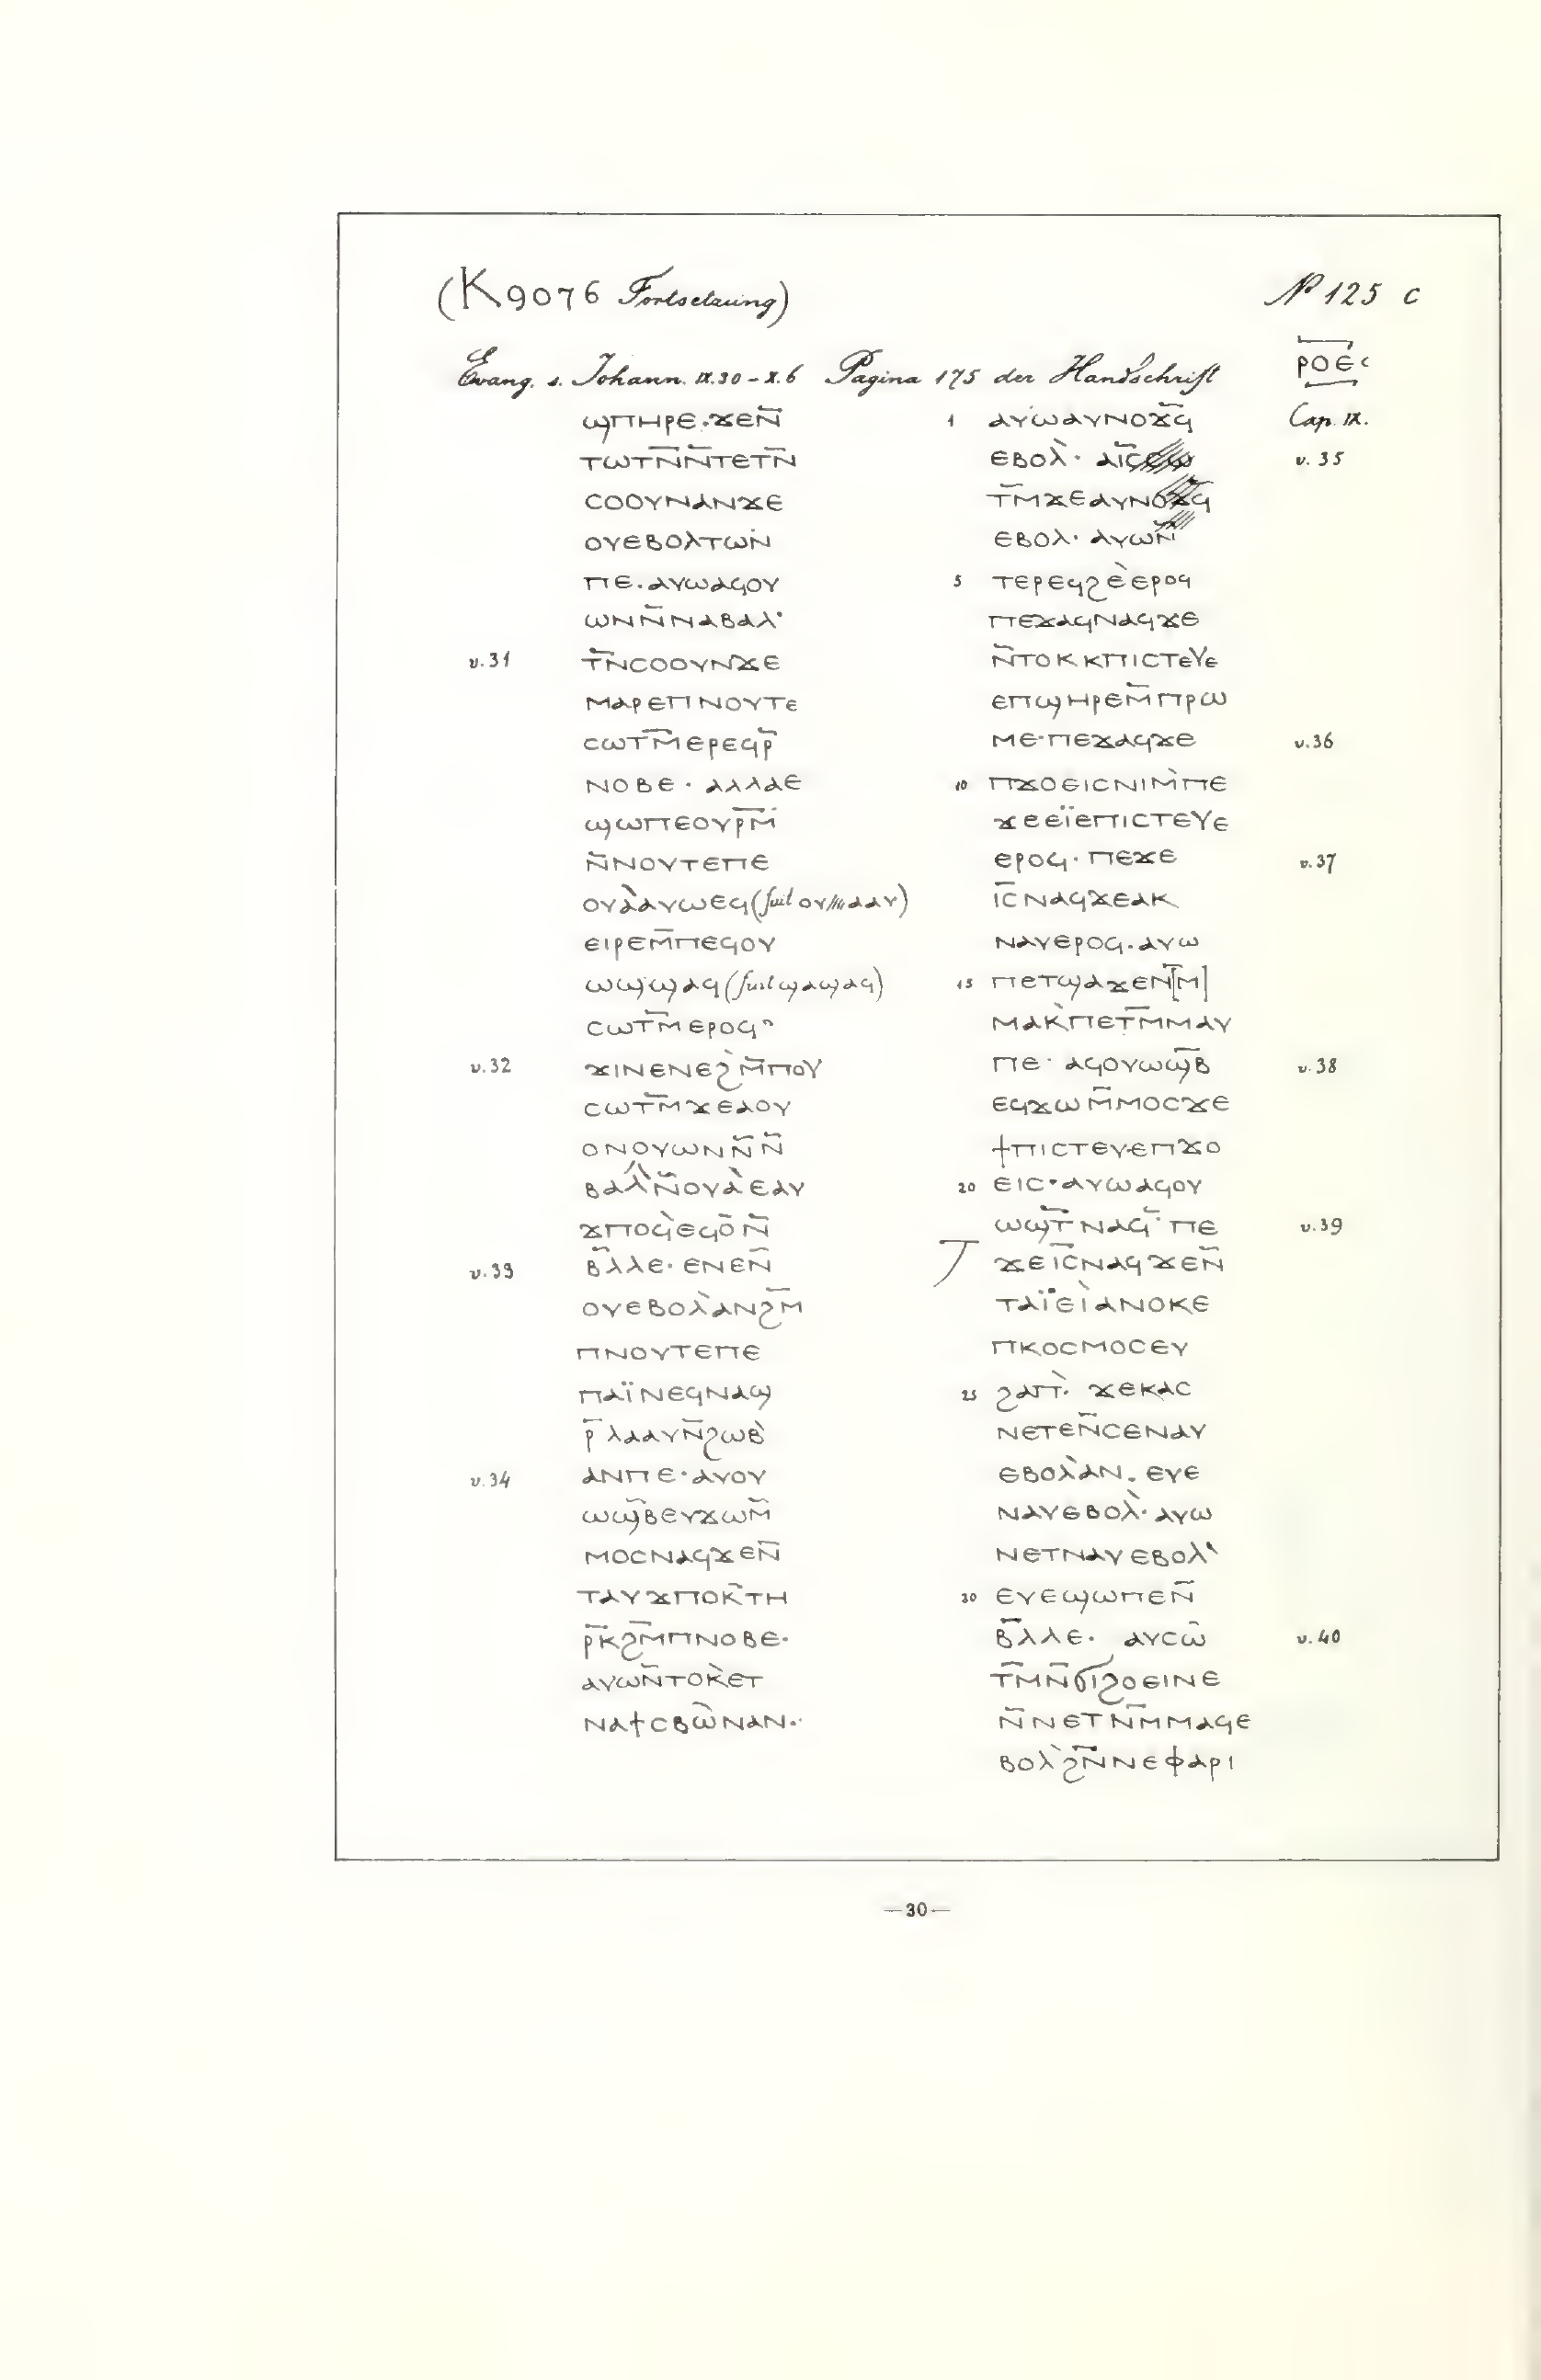 (K 9076 Fortsetzung)
№ 125 c
Evang. s. Johann. IX.30 – X.6 Pagina 175 der Handschrift
ⲣⲟⲉ
Cap. IX.
ϣⲡⲏⲣⲉ·ϫⲉⲛ̄
ⲧⲱⲧⲛ̄ⲛ̄ⲧⲉⲧⲛ̄
ⲥⲟⲟⲩⲛⲁⲛϫⲉ
ⲟⲩⲉⲃⲟⲗⲧⲱⲛ̀
ⲡⲉ·ⲁⲩⲱⲁϥⲟⲩ
ⲱⲛⲛ̄ⲛⲁⲃⲁⲗ·
v.31 ⲧⲛ̄ⲥⲟⲟⲩⲛϫⲉ
ⲙⲁⲣⲉⲡⲛⲟⲩⲧⲉ
ⲥⲱⲧⲙ̄ⲉⲣⲉϥⲣ̄
ⲛⲟⲃⲉ· ⲁⲗⲗⲁⲉ
ϣⲱⲡⲉⲟⲩⲣⲙ̄
ⲛ̄ⲛⲟⲩⲧⲉⲡⲉ
ⲟⲩⲁ̀ⲁⲩⲱⲉϥ (fuit ⲟⲩ///ⲁⲁⲩ)
ⲉⲓⲣⲉⲙ̄ⲡⲉϥⲟⲩ
ⲱϣϣⲁϥ (fuit ϣⲁϣⲁϥ)
ⲥⲱⲧⲙ̄ⲉⲣⲟϥ"
v.32 ϫⲓⲛⲉⲛⲉϩ̀ⲙ̄ⲡⲟⲩ
ⲥⲱⲧⲙ̄ϫⲉⲁⲟⲩ
ⲟⲛⲟⲩⲱⲛⲛ̄ⲛ̄
ⲃⲁⲗ̀ⲛ̄ⲟⲩⲁ̀ⲉⲁⲩ
ϫⲡⲟϥ̀ⲉϥⲟ̄ⲛ̄
v.33 ⲃ̄ⲗⲗⲉ· ⲉⲛⲉⲛ̄
ⲟⲩⲉⲃⲟⲗ̀ⲁⲛϩⲙ̄
ⲡⲛⲟⲩⲧⲉⲡⲉ
ⲡⲁⲓ̈ⲛⲉϥⲛⲁϣ
ⲣ̄ⲗⲁⲁⲩⲛ̄ϩⲱⲃ̀
v.34 ⲁⲛⲡⲉ·ⲁⲩⲟⲩ
ⲱϣ̄ⲃⲉⲩϫⲱⲙ̄
ⲙⲟⲥⲛⲁϥϫⲉⲛ̄
ⲧⲁⲩϫⲡⲟⲕ̀ⲧⲏ
ⲣ̄ⲕϩⲙ̄ⲡⲛⲟⲃⲉ·
ⲁⲩⲱⲛ̄ⲧⲟⲕ̀ⲉⲧ
ⲛⲁϯⲥⲃⲱ̀ⲛⲁⲛ·
1 ⲁⲩⲱⲁⲩⲛⲟϫ̄ϥ
ⲉⲃⲟⲗ̀· ⲁⲓ̄ⲥ̄ⲥⲱ v. 35
ⲧ̄ⲙϫⲉⲁⲩⲛⲟϫ̄ϥ
ⲉⲃⲟⲗ· ⲁⲩⲱⲛ̄
5 ⲧⲉⲣⲉϥϩⲉ̀ⲉⲣⲟϥ
ⲡⲉϫⲁϥⲛⲁϥϫⲉ
ⲛ̄ⲧⲟⲕⲕⲡⲓⲥⲧⲉⲩⲉ
ⲉⲡϣⲏⲣⲉⲙ̄ⲡⲣⲱ
ⲙⲉ·ⲡⲉϫⲁϥϫⲉ v.36
10 ⲡϫⲟⲉⲓⲥⲛⲓⲙ̀ⲡⲉ
ϫⲉⲉⲓ̈ⲉⲡⲓⲥⲧⲉⲩⲉ
ⲉⲣⲟϥ· ⲡⲉϫⲉ v.37
ⲓ̄ⲥ̄ⲛⲁϥϫⲉⲁⲕ
ⲛⲁⲩⲉⲣⲟϥ·ⲁⲩⲱ
15 ⲡⲉⲧϣⲁϫⲉⲛ̄[ⲙ]
ⲙⲁⲕ̀ⲡⲉⲧⲙ̄ⲙⲁⲩ
ⲡⲉ· ⲁϥⲟⲩⲱϣ̄ⲃ v.38
ⲉϥϫⲱⲙ̄ⲙⲟⲥϫⲉ
ϯⲡⲓⲥⲧⲉⲩⲉⲡϫⲟ
20 ⲉⲓⲥ·ⲁⲩⲱⲁϥⲟⲩ
ⲱϣⲧ̄ⲛⲁϥ· ⲡⲉ v.39
ϫⲉⲓ̄ⲥ̄ⲛⲁϥϫⲉⲛ̄
ⲧⲁⲓ̈ⲉⲓ̀ⲁⲛⲟⲕⲉ
ⲡⲕⲟⲥⲙⲟⲥⲉⲩ
25 ϩⲁⲡ̀· ϫⲉⲕⲁⲥ
ⲛⲉⲧⲉⲛ̄ⲥⲉⲛⲁⲩ
ⲉⲃⲟⲗ̀ⲁⲛ· ⲉⲩⲉ
ⲛⲁⲩⲉⲃⲟⲗ̀· ⲁⲩⲱ
ⲛⲉⲧⲛⲁⲩⲉⲃⲟⲗ̀
30 ⲉⲩⲉϣⲱⲡⲉⲛ̄
ⲃ̄ⲗⲗⲉ· ⲁⲩⲥⲱ̄ v. 40
ⲧ̄ⲙⲛ̄ϭⲓϩⲟⲉⲓⲛⲉ
ⲛ̄ⲛⲉⲧⲛ̄ⲙⲙⲁϥⲉ
ⲃⲟⲗ̀ϩⲛ̄ⲛⲉⲫⲁⲣⲓ
—30—